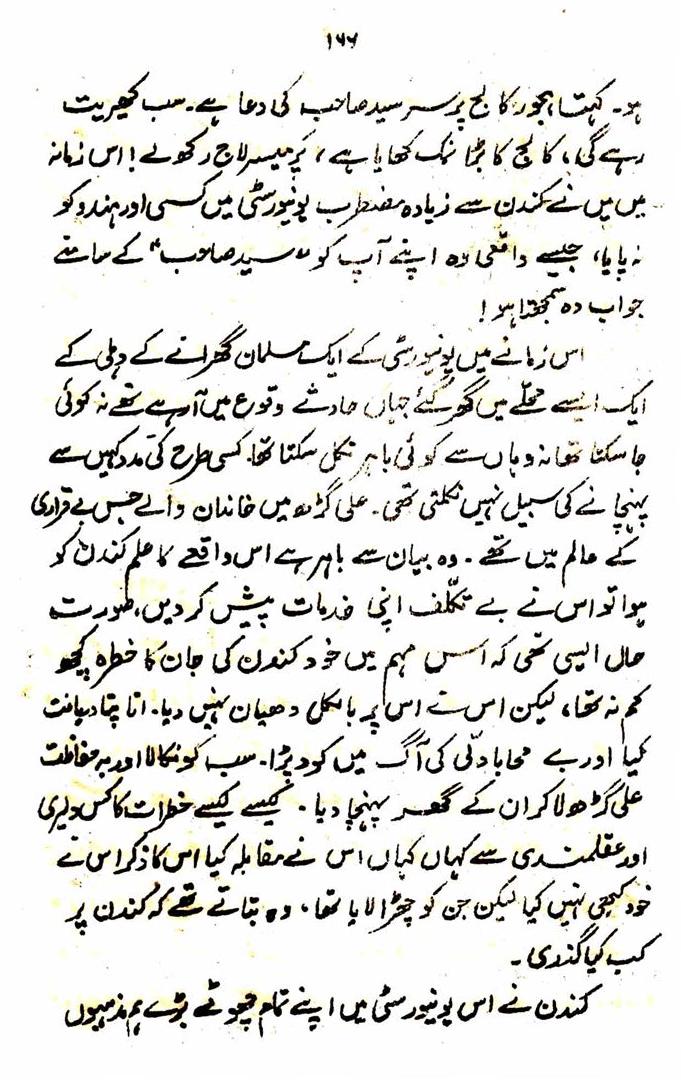 ۱۶۶
ہو۔ کہتا، ہجور کالج پر سرسید صاحب کی دعا ہے۔ سب کھیریت
رہے گی، کالج کا بڑا نمک کھایا ہے، پرمیسر لاج رکھ لے! اس زمانہ
میں میں نے کندن سے زیادہ مضطرب یونیورسٹی میں کسی اور ہندو کو
نہ پایا، جیسے واقعی وہ اپنے آپ کو "سید صاحب" کے سامنے
جواب دہ سمجھتا ہو!
اس زمانے میں یونیورسٹی کے ایک مسلمان گھرانے کے دہلی کے
ایک ایسے محلے میں گھر گئے جہاں حادثے وقوع میں آرہے تھے نہ کوئی
جا سکتا تھا نہ وہاں سے کوئی باہر نکل سکتا تھا۔ کسی طرح کی مدد کہیں سے
پہنچانے کی سبیل نہیں نکلتی تھی۔ علی گڑھ میں خاندان والے جس بے قراری
کے عالم میں تھے۔ وہ بیان سے باہر ہے اس واقعے کا علم کندن کو
ہوا تو اس نے بے تکلّف اپنی خدمات پیش کر دیں، صورت
حال ایسی تھی کہ اس مہم میں خود کندن کی جان کا خطرہ کچھ
کم نہ تھا، لیکن اس نے اس پر بالکل دھیان نہیں دیا۔ اتا پتا دریافت
کیا اور بے محابا دلّی کی آگ میں کود پڑا۔ سب کو نکالا اور بہ حفاظت
علی گڑھ لا کر ان کے گھر پہنچا دیا۔ کیسے کیسے خطرات کا کس دلیری
اور عقلمندی سے کہاں کہاں اس نے مقابلہ کیا اس کا ذکر اس نے
خود کبھی نہیں کیا لیکن جن کو چھڑا لایا تھا، وہ بتاتے تھے کہ کندن پر
کب کیا گذری۔
کندن نے اس یونیورسٹی میں اپنے تمام چھوٹے بڑے ہم مذہبوں